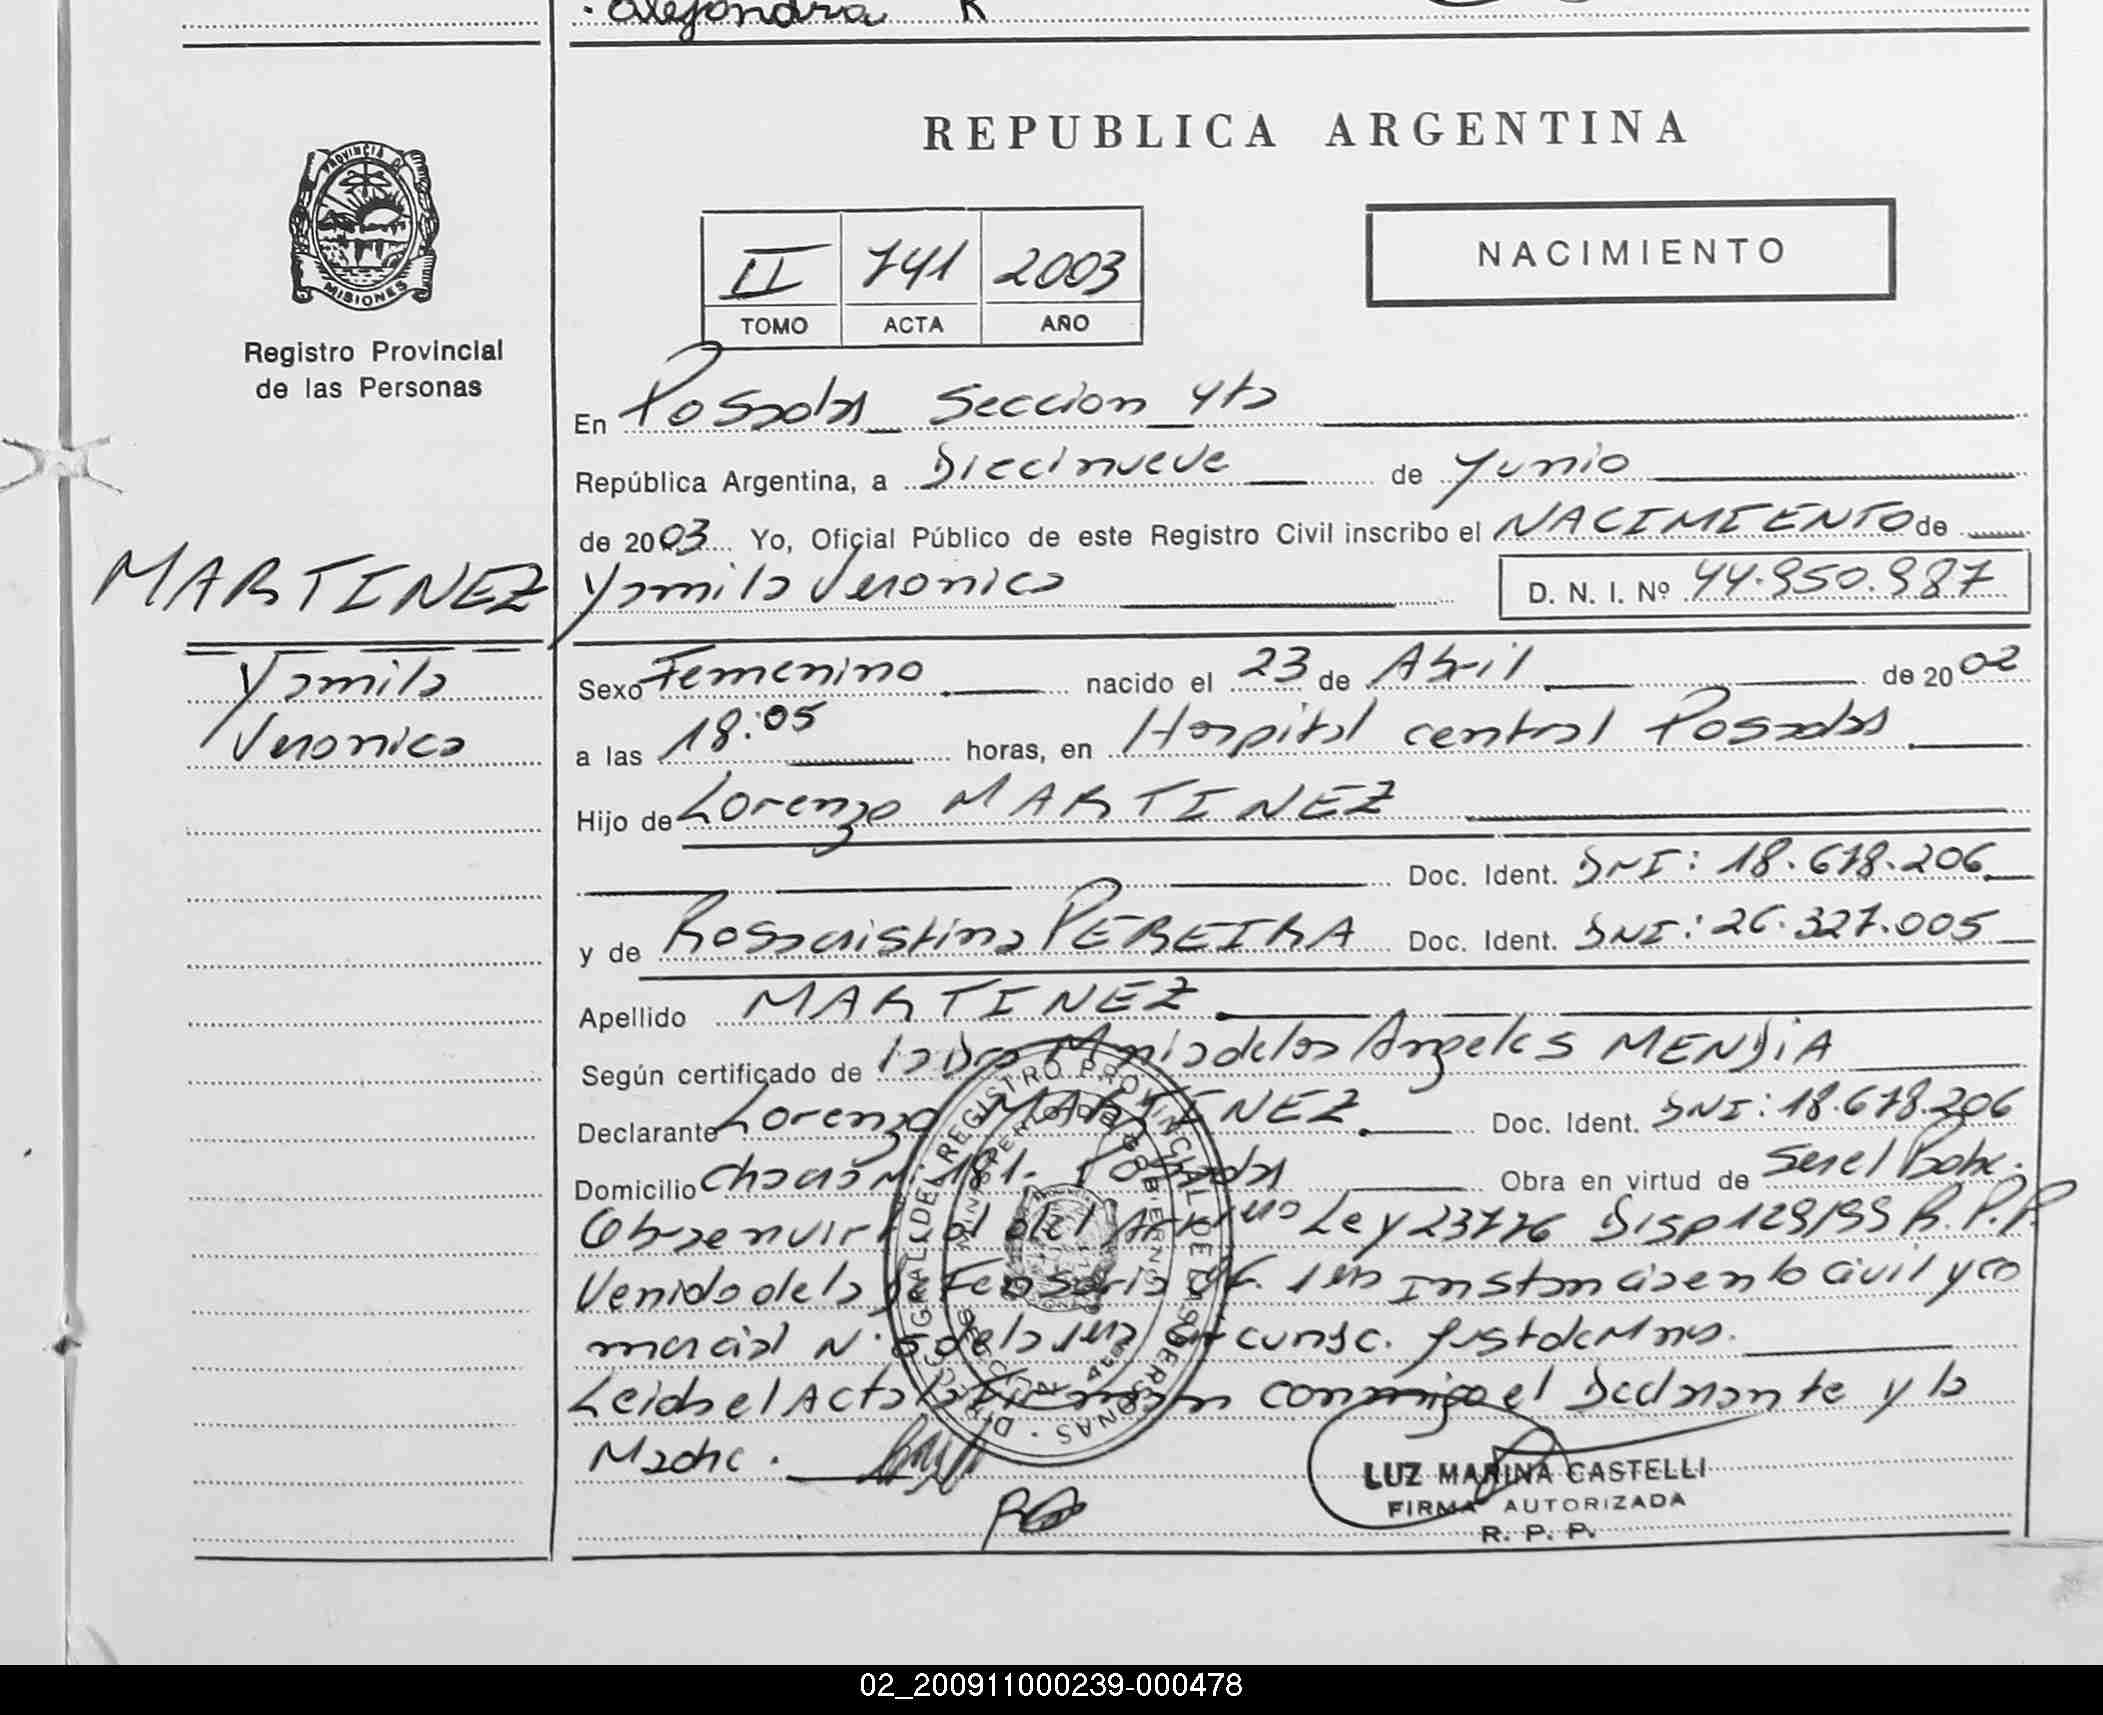 Alejandra R
REPUBLICA ARGENTINA
PROVINCIA DE
MISIONES
Registro Provincial
de las Personas
II 741 2003
TOMO ACTA AÑO
NACIMIENTO
En Posadas Seccion 4ta
República Argentina, a Diecinueve de Junio
de 2003 Yo, Oficial Público de este Registro Civil inscribo el NACIMIENTO de
MARTINEZ
Yamila Veronica
Yamila Veronica D. N. I. Nº 44.950.987
Sexo Femenino nacido el 23 de Abril de 2002
a las 18:05 horas, en Hospital central Posadas
Hijo de Lorenzo MARTINEZ
Doc. Ident. DNI: 18.678.206
y de Rosa cristina PEREIRA Doc. Ident. DNI: 26.327.005
Apellido MARTINEZ
Según certificado de la Dra Maria de los Angeles MENDIA
Declarante Lorenzo MARTINEZ Doc. Ident. DNI: 18.678.206
Domicilio chacra N: 181. Posadas Obra en virtud de Ser el Padre.
Obra en virtud del Art Ley 23776 Disp 129/99 R.P.P.
Venido de la Defensoria de 1era Instancia en lo civil y co
mercial N: de la 1era Circunsc. Just de Mnes.
Leida el Acta la firman conmigo el Declarante y la
Madre.
DIRECC. GRAL. DEL REGISTRO PROVINCIAL DE LAS PERSONAS
MINISTERIO DE GOBIERNO
SECCION 4ta
LUZ MARINA CASTELLI
FIRMA AUTORIZADA
R. P. P.
02_200911000239-000478